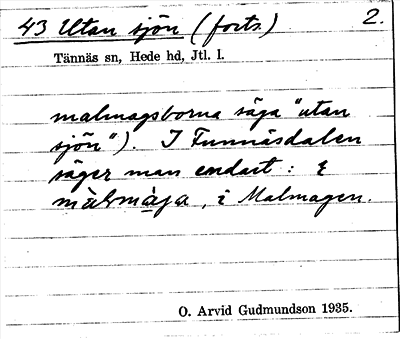 43 Utan sjön (forts.) 2.
Tännäs sn, Hede hd, Jtl. l.
malmagsborna säga "utan
sjön"). I Funnäsdalen
säger man endast :
, i Malmagen.
O. Arvid Gudmundson 1935.